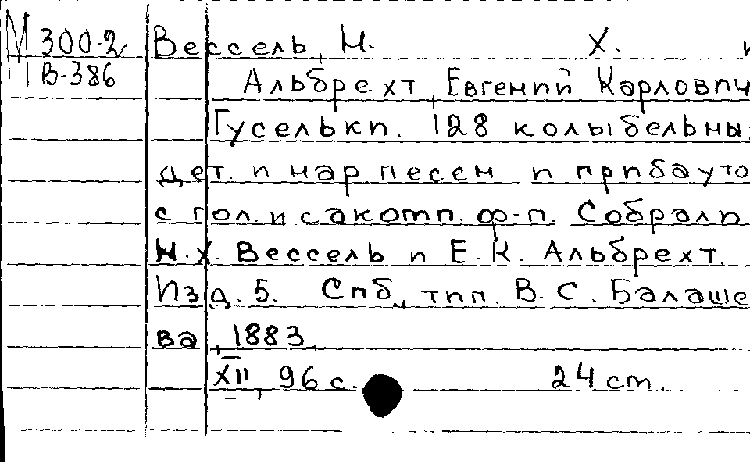 М 300-2 Вессель, Н. Х. и
В-386 Альбрехт, Евгений Карлович
Гуселькп. 128 колыбельны
дет. и нар песен и прибауто
с гол. и сакотп. ф-п. Собрали
Н. Х. Вессель и Е. К. Альбрехт.
Изд. 5. Спб, тип. В. С. Балаше
ва, 1883
XII, 96 с. 24 cm.